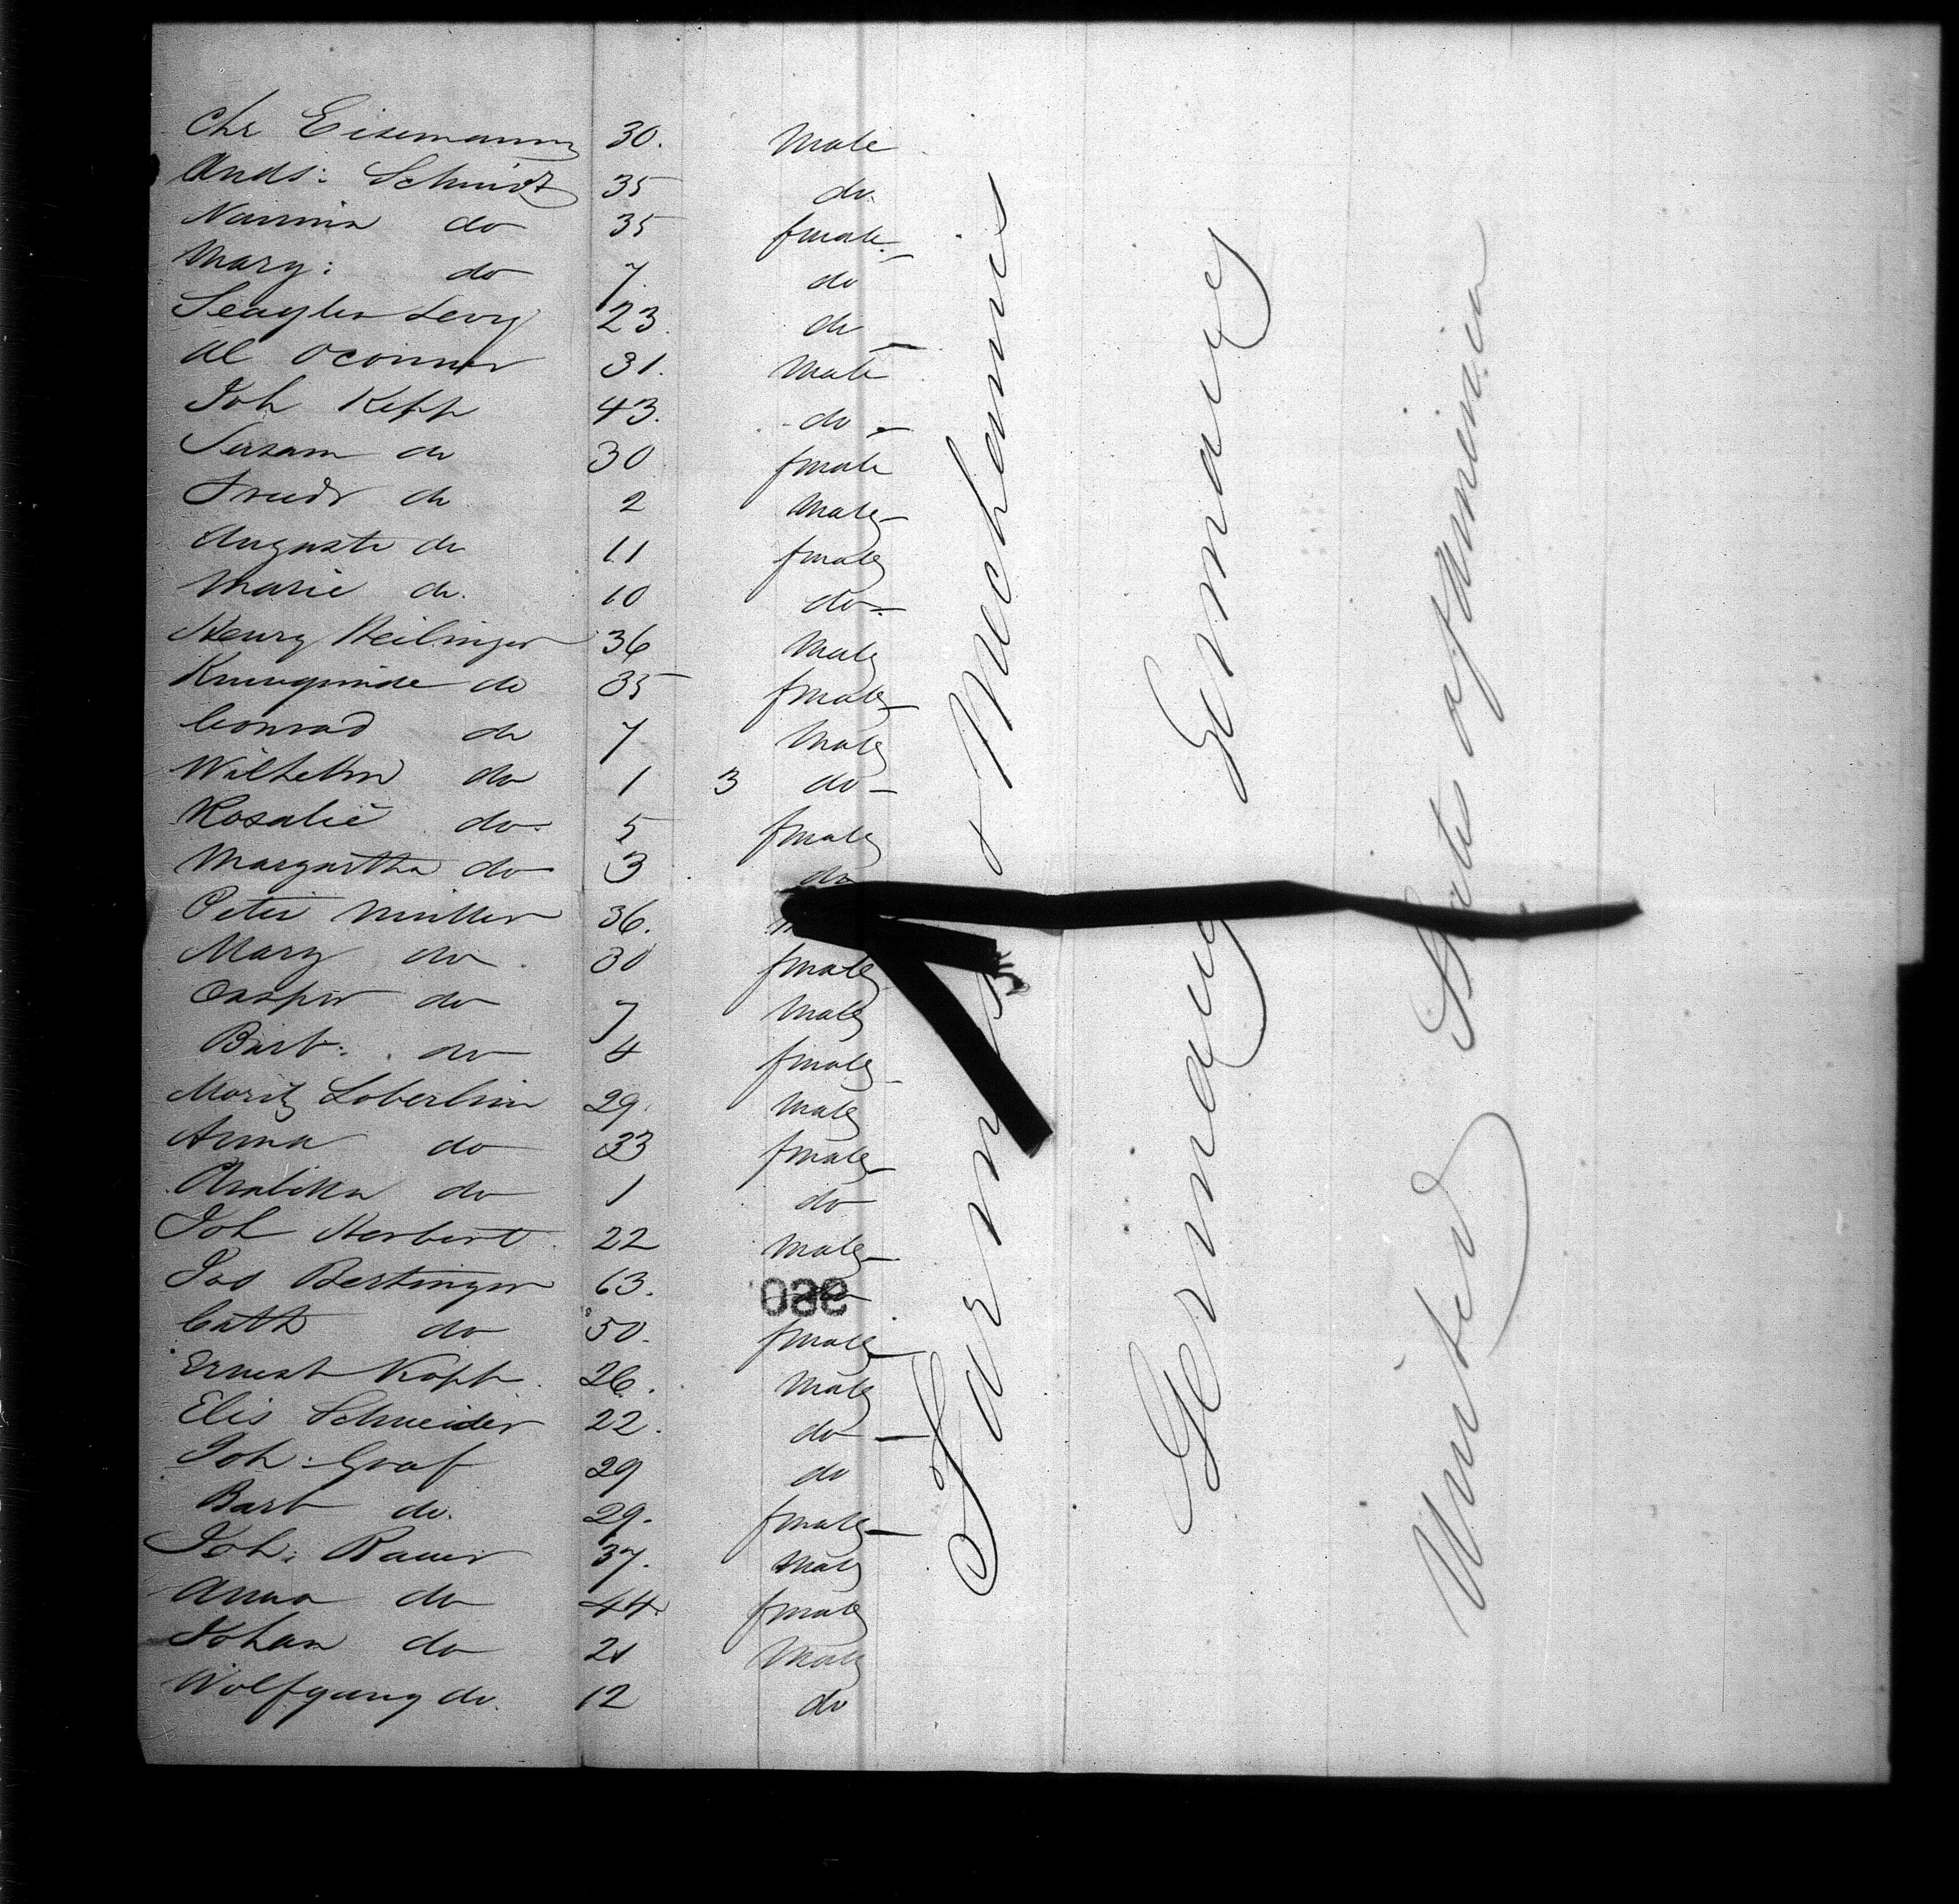 Chr Eisemann 30. Male
Ands: Schmidt 35 do.
Nannia do 35 female
Mary: do 7. do
Seagler Levy 23. do
Al Oconner 31. Male
Joh Kepp 43. do
Susam do 30 female
Friedr do 2 Male
Auguste do 11 female
Marie do. 10 do
Henry Heilinger 36 Male
Kunugunde do 35 female
Conrad do 7 Male
Wilhelm do 1 3 do
Rosalie do 5 female
Margartha do 3 do
Peter Muller 36.
Mary do 30 female
Casper do 7 Male
Barb: do 4 female
Moritz Loberlein 29. Male
Anna do 33 female
do 1 do
Joh Herbert 22 Male
Jos Bertinger 63. do
Cath do 50. female
Ernest Kopp. 26. Male
Elis Schneider 22. do
Joh: Graf 29 do
Barb do. 29. female
Joh: Bauer 37. Male
Anna do 44. female
Johan do 21 Male
Wolfgang do. 12 do
380.
Farmers & Mechanics
Germany Germany
United States of America